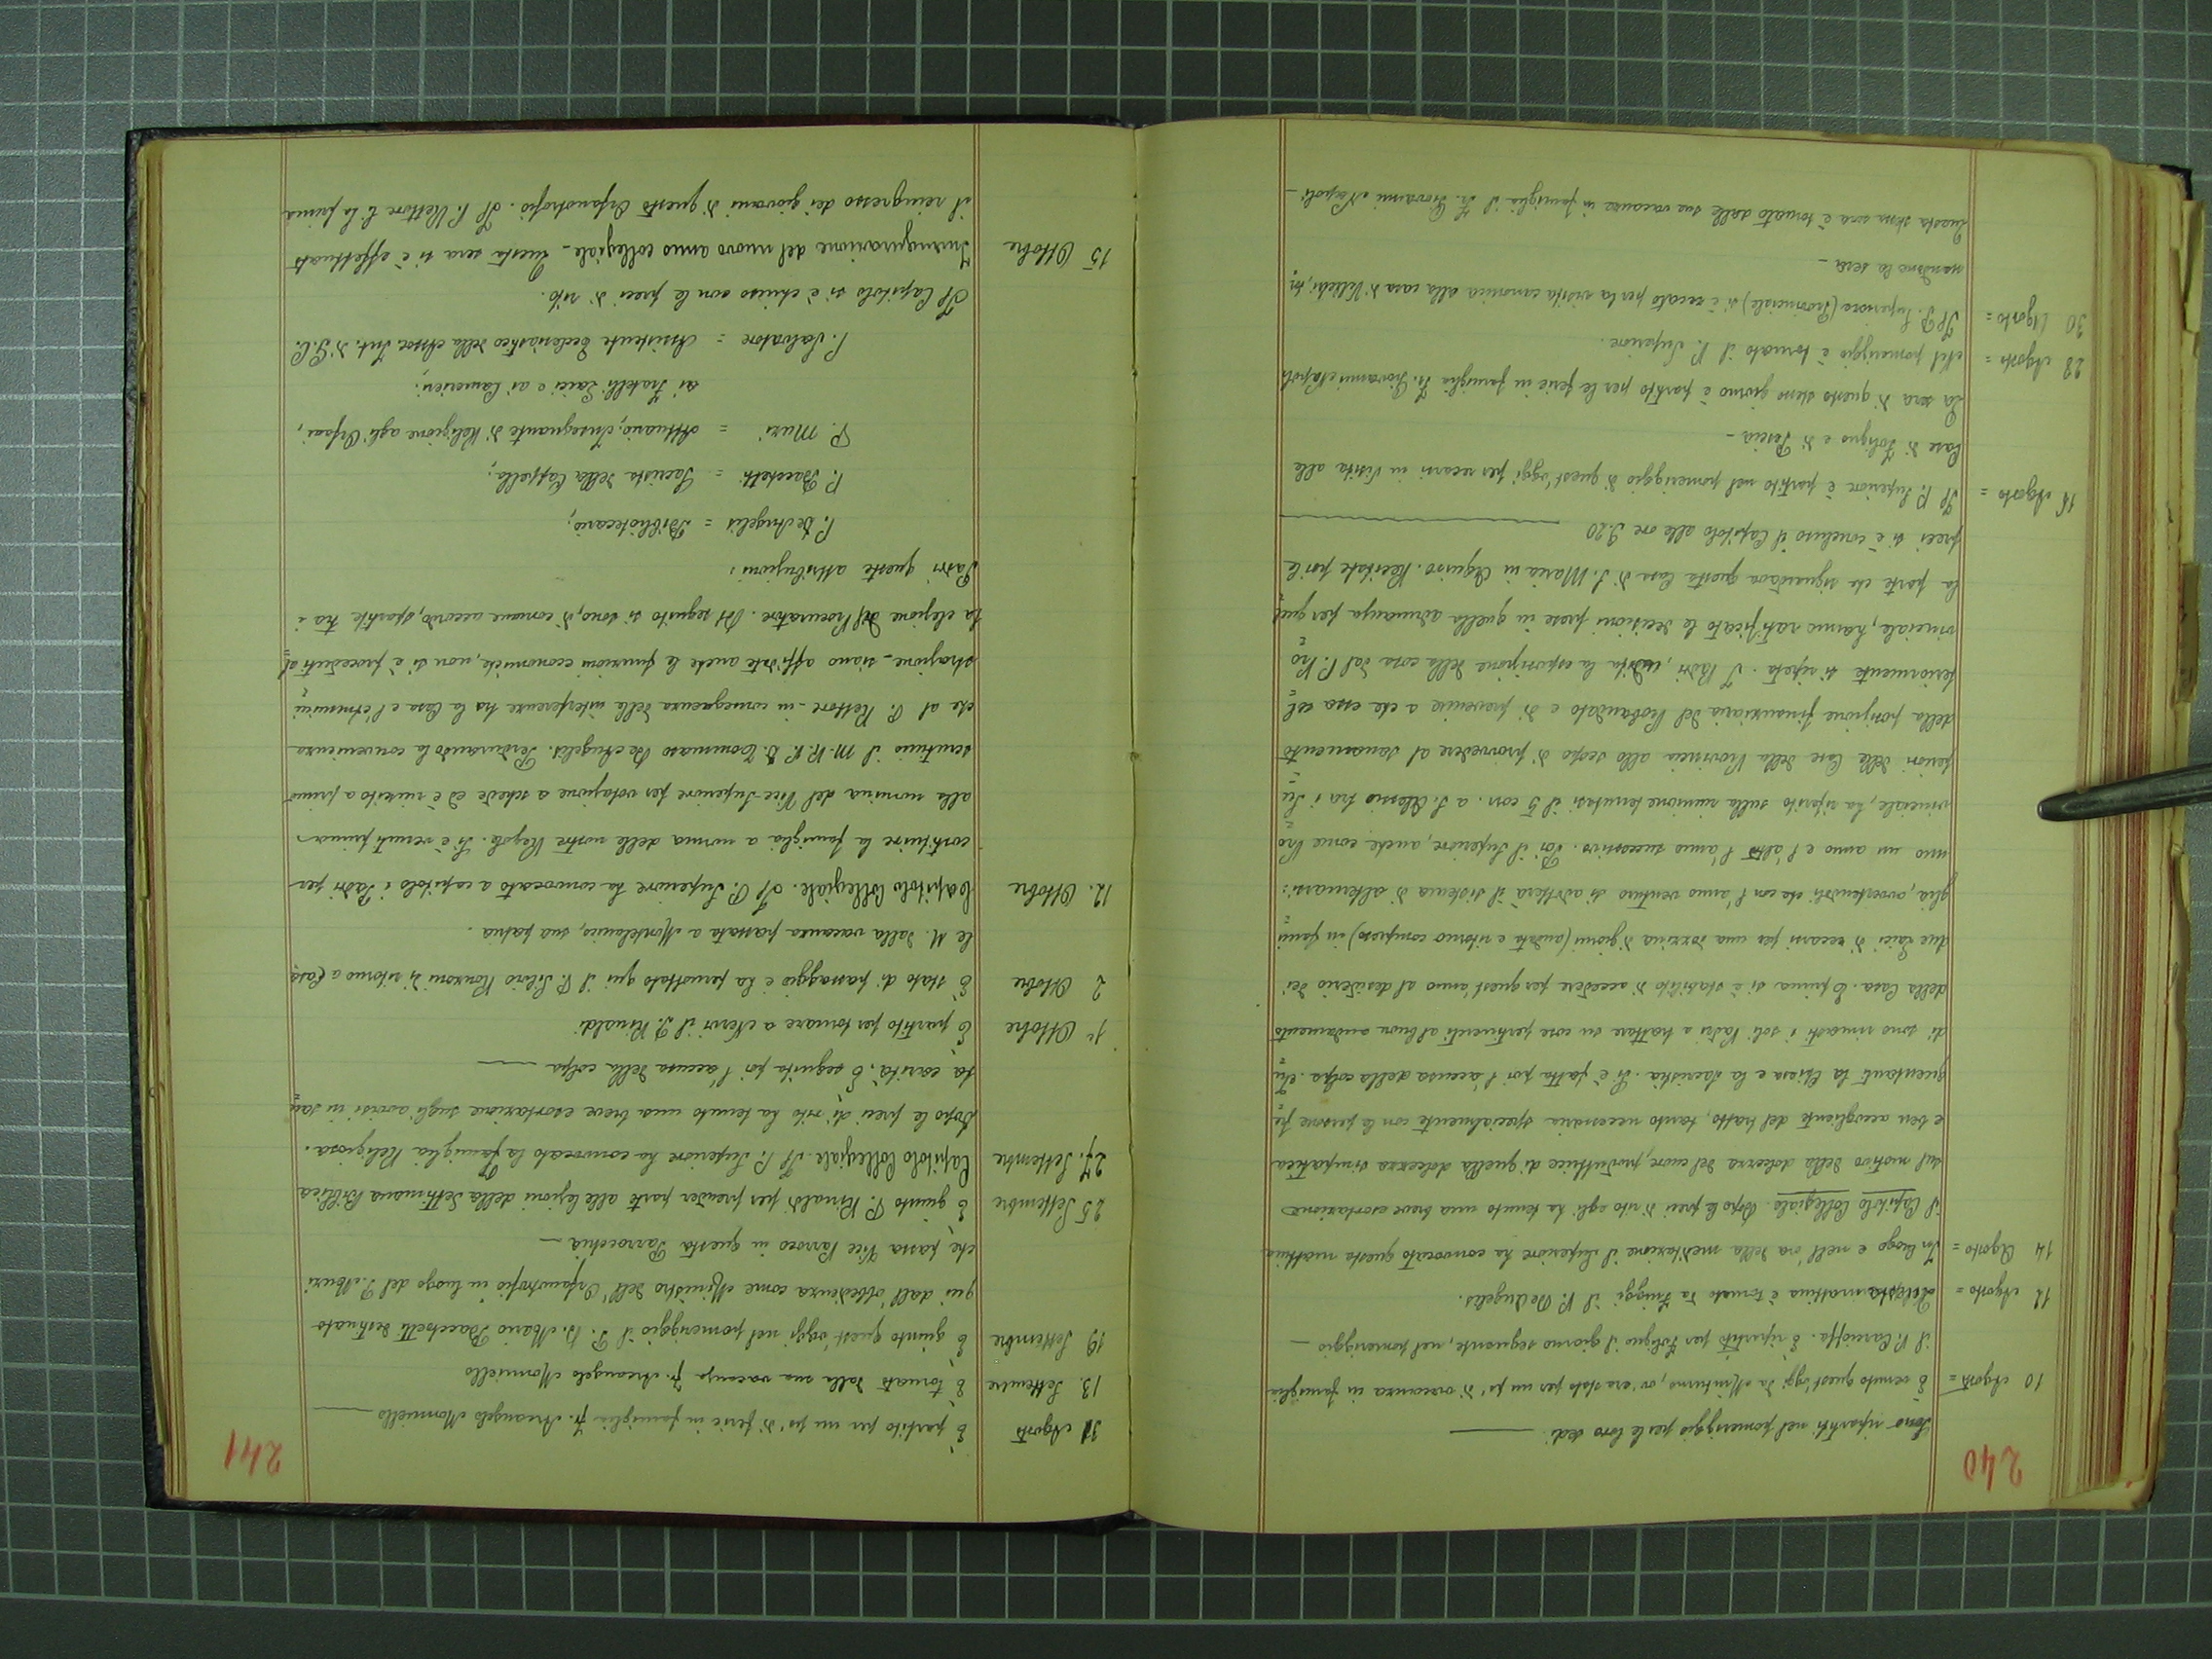 240
Sono ripartiti nel pomeriggio per le loro sedi.
10 Agosto = È venuto quest'oggi da Minturno, ov'era stato per un po' di vacanza in famiglia
il P. Carnoffa. È ripartito per Foligno il giorno seguente, nel pomeriggio —
12 Agosto = mattina è tornato da Fiuggi il P. De Angelis.
14 Agosto = In luogo e nell'ora della meditazione il Superiore ha convocato questa mattina
il Capitolo Collegiale. Dopo le preci di rito egli ha tenuto una breve esortazione
sul motivo della dolcezza del cuore, produttrice di quella dolcezza simpatica
e ben accogliente del tratto, tanto necessaria specialmente con le persone fre=
quentanti la Chiesa e la sacristia. Si è fatta poi l'accusa della colpa. Qui=
di sono rimasti i soli Padri a trattare su cose pertinenti al buon andamento
della Casa. E prima si è stabilito di accedere per quest'anno al desiderio dei
due Laici di recarsi per una dozzina di giorni (andata e ritorno compreso) in fami=
glia, avvertendoli che con l'anno venturo si adotterà il sistema di alternarsi:
uno un anno e l'altro l'anno successivo. Poi il Superiore, anche come Pro=
vinciale, ha riferito sulla riunione tenutasi il 5 corr. a S. Alessio tra i Su=
periori delle Case della Provincia allo scopo di provvedere al sanamento
della posizione finanziaria del Probandato e di prevenire a che essa ul=
teriormente si ripeta. I Padri, udita la esposizione della cosa dal P. Pro=
vinciale, hanno ratificato le decisioni prese in quella adunanza per quel=
la parte che riguardava questa Casa di S. Maria in Aquiro. Recitate poi le
preci si è concluso il Capitolo alle ore 9.20
16 Agosto = Il P. Superiore è partito nel pomeriggio di quest'oggi per recarsi in Visita alle
Case di Foligno e di Pescia —
La sera di questo stesso giorno è partito per le ferie in famiglia Fr. Giovanni Napoli
28 Agosto = Nel pomeriggio è tornato il P. Superiore.
30 Agosto = Il P. Superiore (Provinciale) si è recato per la visita canonica alla casa di Velletri, tor=
nandone la sera —
Questa stessa sera è tornato dalle sue vacanze in famiglia il Fr. Giovanni Napoli —
241
31 Agosto È partito per un po' di ferie in famiglia Fr. Arcangelo Monniello
13. Settembre È tornato dalla sua vacanza Fr. Arcangelo Monniello
19 Settembre È giunto quest'oggi nel pomeriggio il P. D. Mario Bacchetti destinato
qui dall'obbedienza come Ministro dell'Orfanotrofio in luogo del P. Muzi
che passa Vice Parroco in questa Parrocchia —
25 Settembre È giunto P. Rinaldi per prender parte alle lezioni della Settimana Biblica
27. Settembre Capitolo Collegiale. Il P. Superiore ha convocato la famiglia Religiosa.
Dopo le preci di rito ha tenuto una breve esortazione sugli avvisi in san=
ta carità. È seguita poi l'accusa della colpa
1° Ottobre È partito per tornare a Nervi il P. Rinaldi
2 Ottobre È stato di passaggio e ha pernottato qui il P. Silvio Ronzoni di ritorno a Casa=
le M. dalla vacanza passata a Montelanico, sua patria.
12. Ottobre Capitolo Collegiale. Il P. Superiore ha convocato a capitolo i Padri per
costituire la famiglia a norma delle nostre Regole. Si è venuti prima
alla nomina del Vice-Superiore per votazione a schede ed è riuscito a primo
scrutinio il M. R. P. D. Tommaso De Angelis. Perdurando la convenienza
che al P. Rettore - in conseguenza delle interferenze tra la Casa e l'Ammini=
strazione - siano affidate anche le funzioni economiche, non si è proceduti al=
la elezione del Procuratore. In seguito si sono, di comune accordo, spartite tra i
Padri queste attribuzioni:
P. De Angelis = Bibliotecario;
P. Bacchetti = Sacrista della Cappella;
P. Muzi = Attuario, Insegnante di Religione agli Orfani,
ai Fratelli Laici e ai Camerieri;
P. Salvatore = Assistente Ecclesiastico della Assoc. Int. di G. C.
Il Capitolo si è chiuso con le preci di rito.
15 Ottobre Inaugurazione del nuovo anno collegiale - Questa sera si è effettuato
il reingresso dei giovani di questo Orfanotrofio. Il P. Rettore È la prima